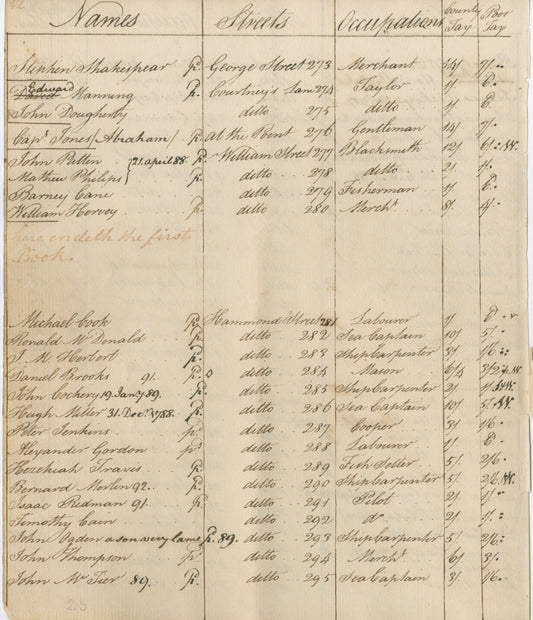 Names Streets Occupations County Tax Poor Tax
Stephen Shakespear pd. George Street 273 Merchant 14/ 7/.
Edward
David Manning pd. Courtney's Lane 274 Taylor 1/
John Dougherty ditto 275 ditto 1/
Capt. Jones/Abraham/. pd. At the Point 276 Gentleman 14/ 7/.
John Patten 21. april 88. pd. William Street 277 Blacksmith 12/ 6/.
Mathew Philips pd. ditto 278 ditto 2/ 1/.
Barney Cane ditto 279 Fisherman 1/
William Hervey pd. ditto 280 Mercht. 8/ 4/.
here endeth the first
Book.
Michael Cook pd. Hammond Street 281 Labourer 1/
Ronald McDonald pd. ditto 282 Sea Captain 10/ 5/.
J. M. Herbert pd. ditto 283 Ship Carpenter 3/ 1/6
Daniel Brooks 91. pd. ditto 284 Mason
John Cockery 19 Jany. 89. pd. ditto 285 Ship Carpenter 2/ 1/
Hugh Miller 31. Decr. 1788. pd. ditto 286 Sea Captain 10/ 5/.
Peter Jenkins pd. ditto 287 Cooper 3/ 1/6
Alexander Gordon pd. ditto 288 Labourer 1/
Hezekiah Travis pd. ditto 289 Fish Seller 5/. 2/6
Bernard Merlin 92. pd. ditto 290 Ship Carpenter 5/. 2/6
Isaac Redman 91. pd. ditto 291 Pilot 2/ 1/.
Timothy Cain ditto 292 do 2/ 1/.
John Ogden a son very lame pd. 89. ditto 293 Ship Carpenter 5/ 2/6
John Thompson pd. ditto 294 Mercht. 6/ 3/.
John McTier 89. pd. ditto 295 Sea Captain 3/. 1/6.
25